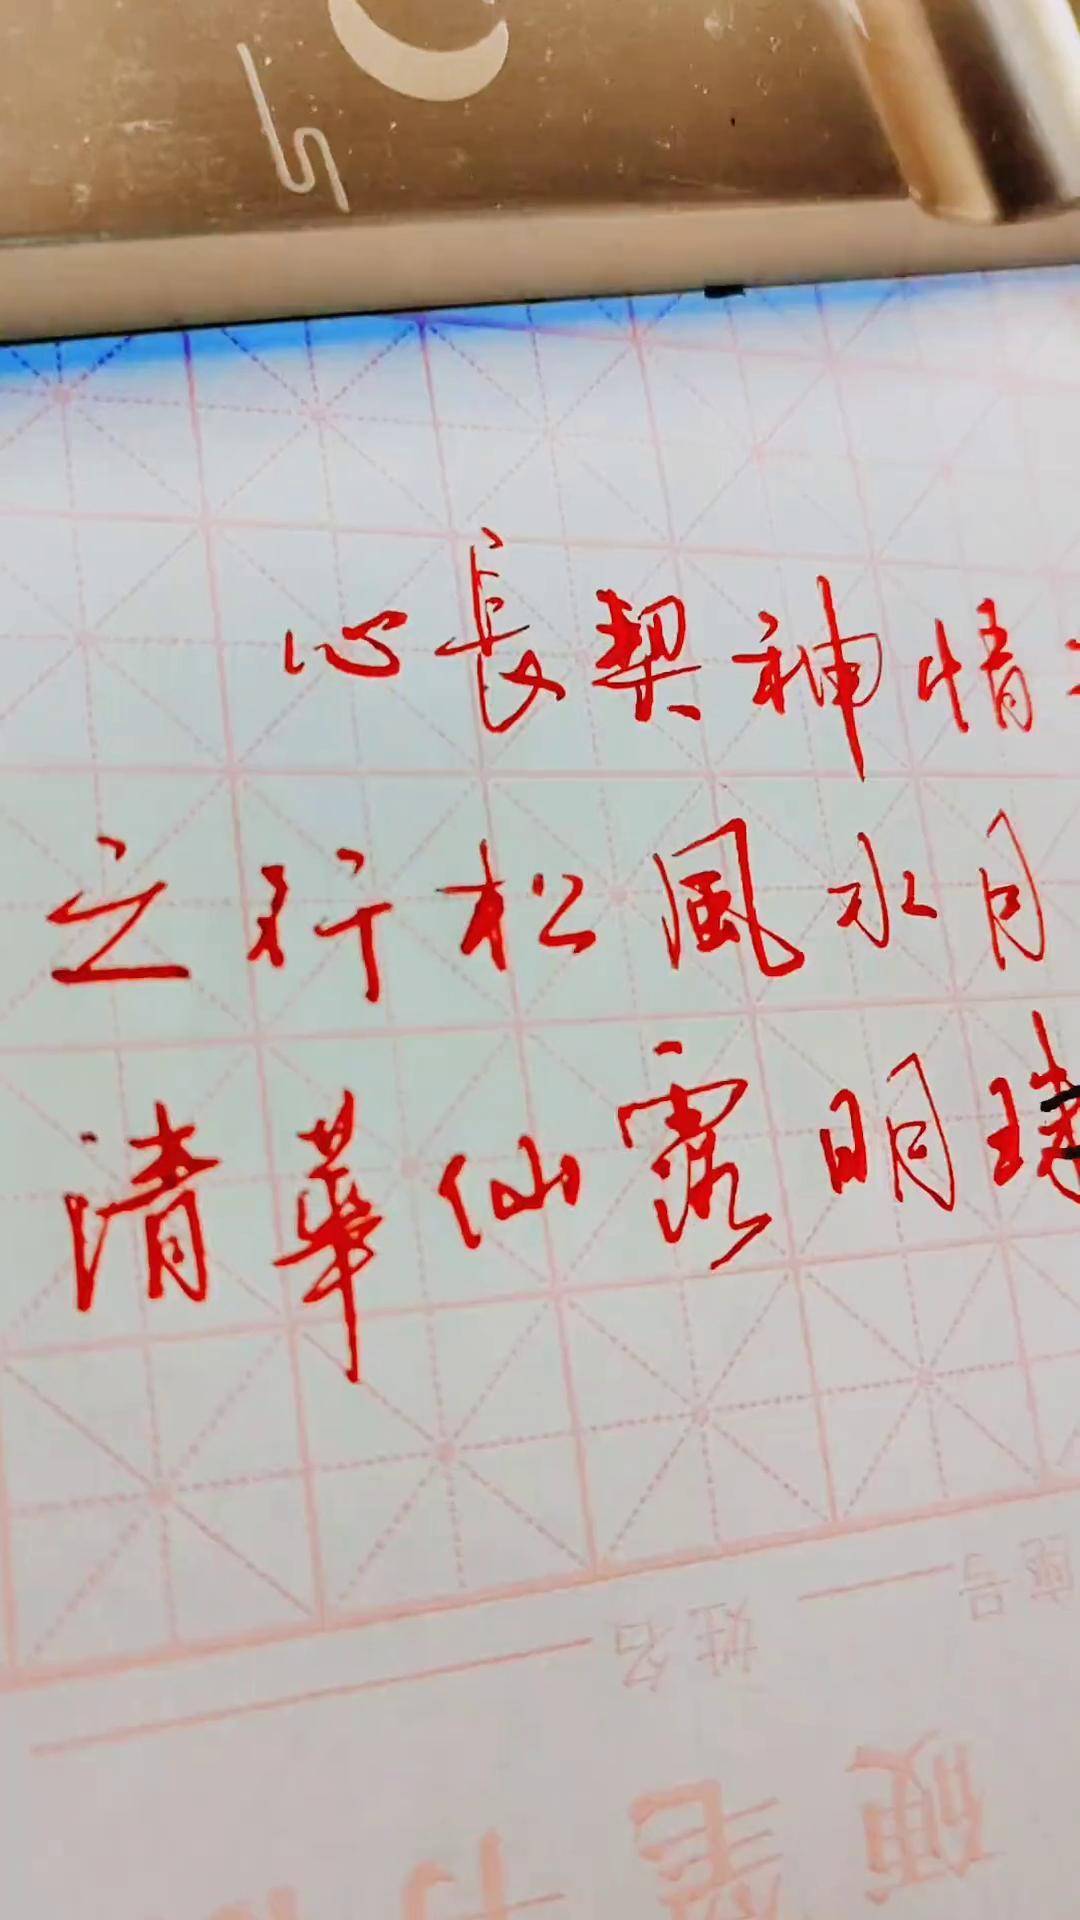 心長契神情
之行松風水月
清華仙露明珠
姓名
座号
硬笔